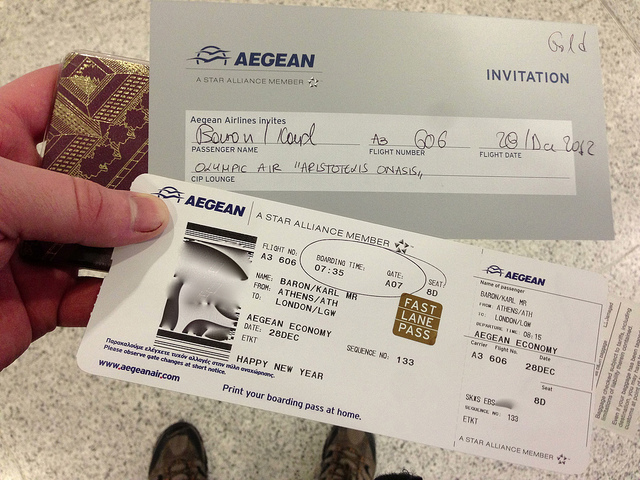 Gold
AEGEAN
A STAR ALLIANCE MEMBER
INVITATION
Aegean Airlines invites
Baron / Karl A3 606 28/Dec 2012
PASSENGER NAME FLIGHT NUMBER FLIGHT DATE
OLYMPIC AIR "ARISTOTELIS ONASIS"
CIP LOUNGE
AEGEAN
A STAR ALLIANCE MEMBER
FLIGHT NO: BOARDING TIME: GATE: SEAT:
A3 606 07:35 A07 8D
NAME: BARON/KARL MR
FROM: ATHENS/ATH
TO: LONDON/LGW
FAST
LANE
PASS
AEGEAN ECONOMY
DATE: 28DEC
ETKT
SEQUENCE NO: 133
HAPPY NEW YEAR
Παρακαλούμε ελέγχετε τυχόν αλλαγές στην πύλη αναχώρησης.
Please observe gate changes at short notice.
www.aegeanair.com
Print your boarding pass at home.
AEGEAN
Name of passenger
BARON/KARL MR
FROM: ATHENS/ATH
TO: LONDON/LGW
DEPARTURE TIME: 08:15
AEGEAN ECONOMY
Carrier Flight No. Date
A3 606 28DEC
Seat
8D
SK*S EBS
SEQUENCE NO: 133
ETKT
A STAR ALLIANCE MEMBER